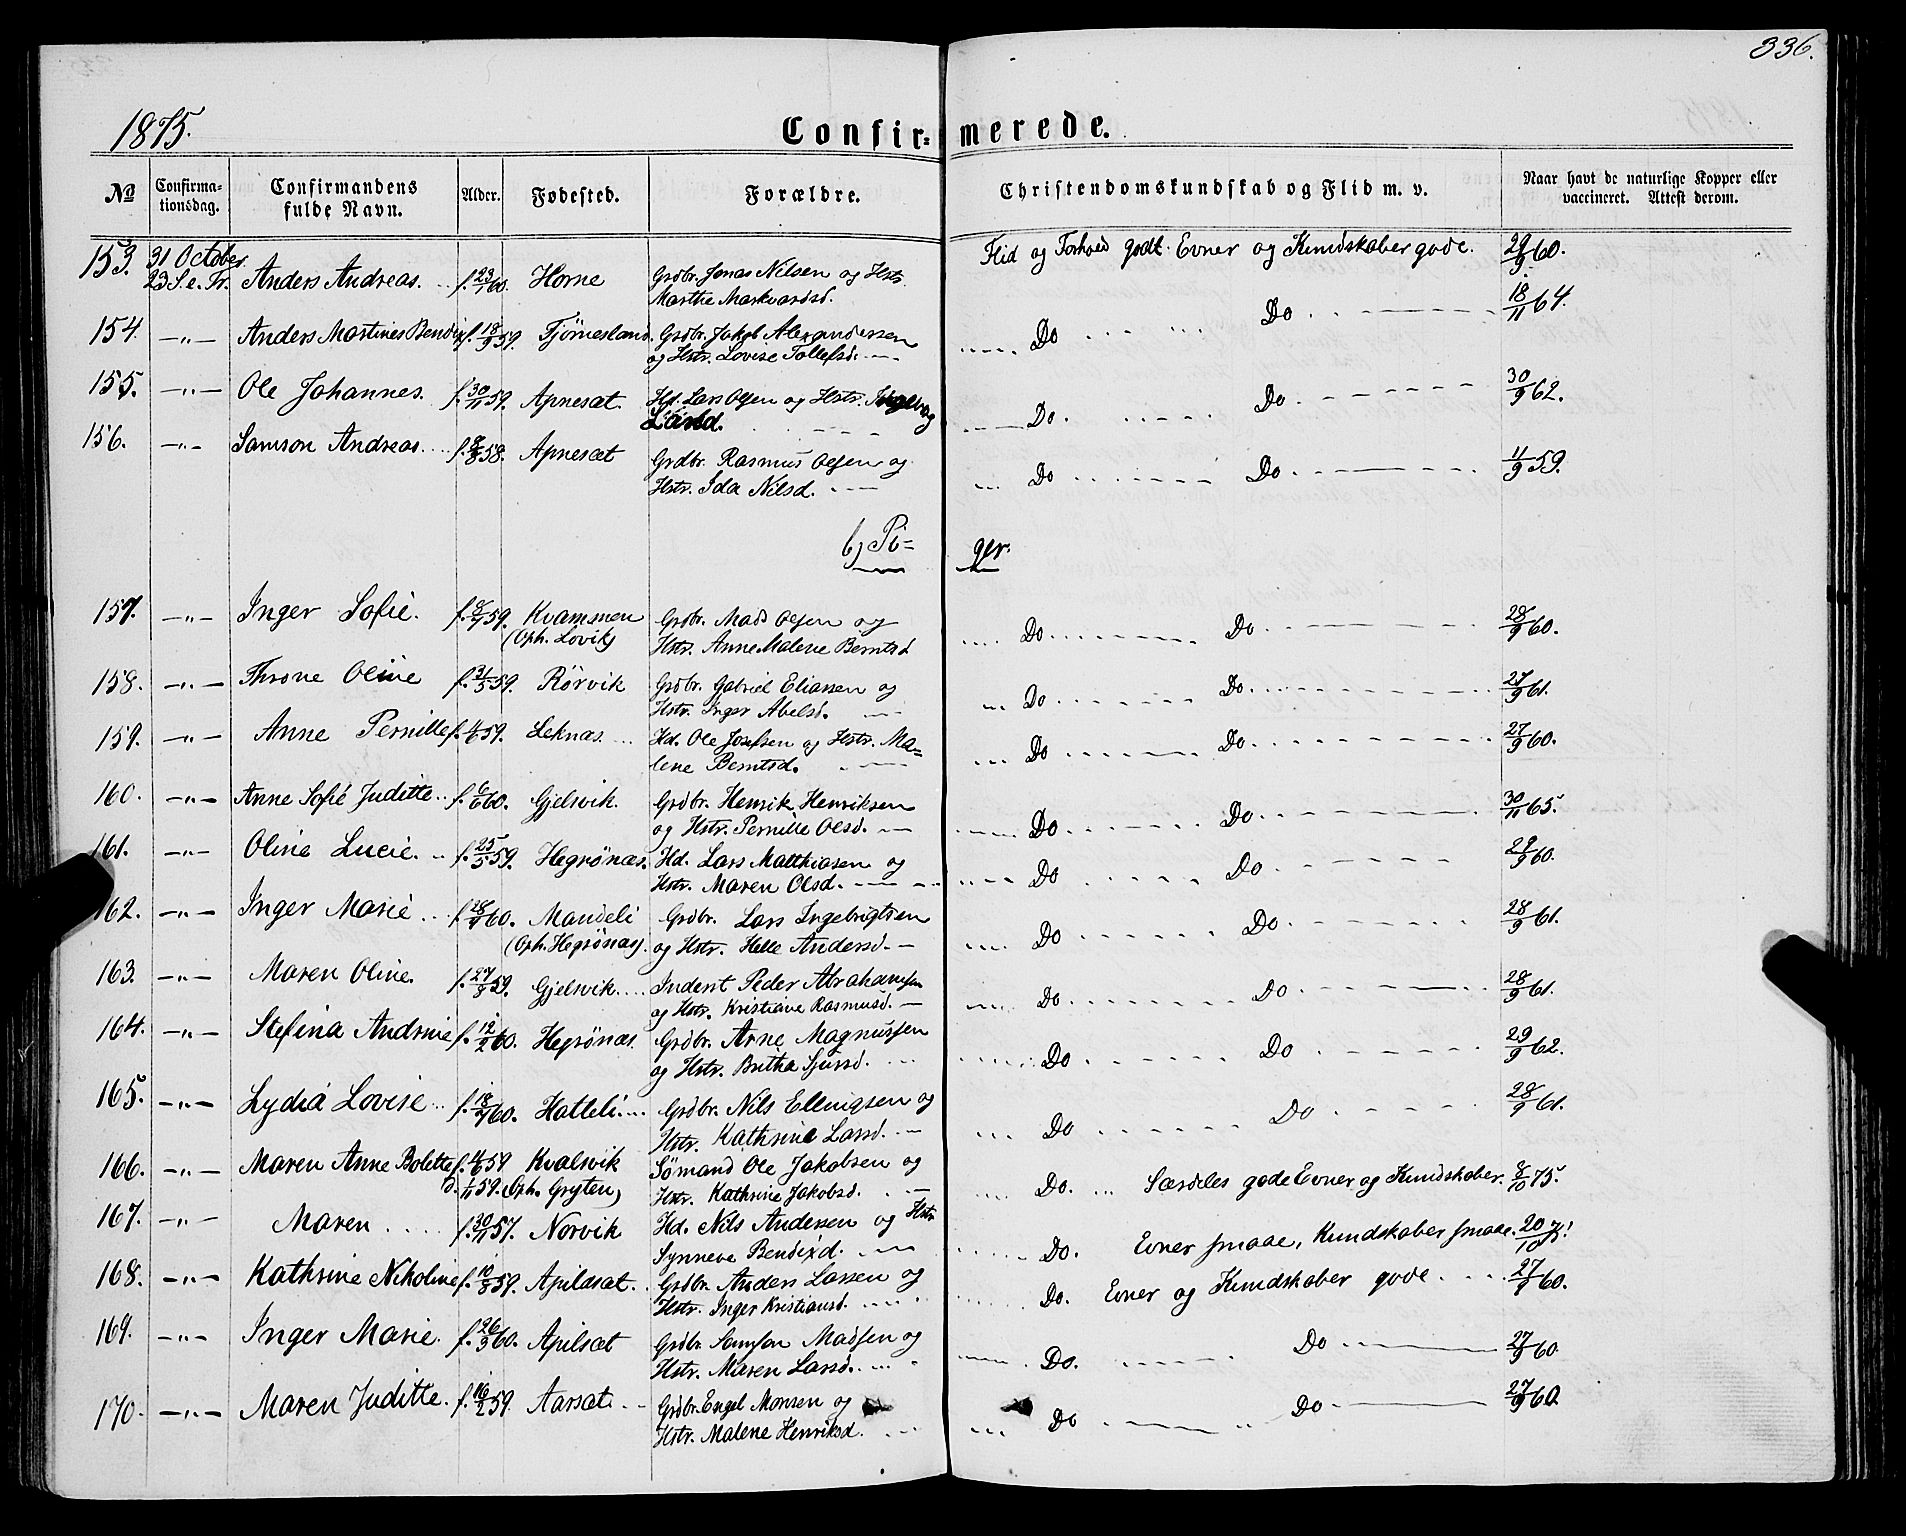 336.
1875.
Confir= merede.
No Confirma-tionsdag. Confirmandens fulde Navn. Alder. Fødested. Forældre. Christendomskundskab og Flid m. v. Naar havt de naturlige Kopper eller vaccineret. Attest derom.
153. 31 October 23 S. e. Tr. Anders Andreas. f. 23/1 60. Horne Grdbr. Jonas Nilsen og Hstr. Flid og Forhold godt. Evner og Kundskaber gode. 29/9 60.
Marthe Markvardsd.
154. -"- Anders Martines Bendix f. 18/9 59. Fjörnesland. Grdbr. Jakob Alexandersen Do Do 18/11 64.
og Hstr. Lovise Tollefsd.
155. -"- Ole Johannes. f. 30/11 59. Apnesæt. Hd. Lars Olsen og Hstr. Do. Do 30/9 62.
Larsd.
156. -"- Samson Andreas. f. 8/8 58. Apnesæt Grdbr. Rasmus Olsen og Do Do 11/9 59.
Hstr. Ida Nilsd.
b) Pi= ger.
157. -"- Inger Sofie. f. 8/7 59. Kvammen Grdbr. Mads Olsen og Do Do 28/9 60.
(Oph. Lovik) Hstr. Anne Malene Berntsd
158. -"- Throne Oline f. 31/5 59. Rörvik Grdbr. Gabriel Eliassen og Do Do 27/9 61.
Hstr. Inger Abelsd.
159. -"- Anne Pernille f. 4/6 59. Leknæs Hd. Ole Josefsen og Hstr. Ma= Do Do 27/9 60.
lene Berntsd.
160. -"- Anne Sofie Juditte f. 6/6 60. Gjelsvik. Grdbr. Henrik Henriksen Do Do 30/11 65.
og Hstr. Pernille Olsd.
161. -"- Oline Lucie. f. 25/5 59. Hegrönæs. Hd. Lars Matthiasen og Do Do 29/9 60.
Hstr. Maren Olsd.
162. -"- Inger Marie f. 28/4 60. Maudeli Grdbr. Lars Ingebrigtsen Do Do 28/9 61.
(Oph. Hegrönæs). og Hstr. Helle Andersd.
163. -"- Maren Oline. f. 27/8 59. Gjelsvik Inderst Peder Abrahamsen Do Do 28/9 61.
og Hstr. Kristiane Rasmusd.
164. -"- Stefina Andrine f. 12/2 60. Hegrönæs. Grdbr. Arne Magnussen Do Do 29/9 62.
og Hstr. Britha Sjursd.
165. -"- Lydia Lovise f. 18/4 60. Hatleli Grdbr. Nils Ellingsen og Do Do 28/9 61.
Hstr. Kathrine Larsd.
166. -"- Maren Anne Bolette f. 4/6 59 Kvalsvik Sömand Ole Jakobsen og Do. Særdeles gode Evner og Kundskaber. 8/10 75.
d. 1/11 59. (Oph. Gryten) Hstr. Kathrine Jakobsd.
167. -"- Maren f. 30/11 57. Norvik Hd. Nils Andersen og Hstr Do. Evner smaae, Kundskaber smaae. 20/10
Synneve Bendixd.
168. -"- Kathrine Nikoline f. 10/8 59. Apildsæt. Grdbr. Anders Larsen og Do. Evner og Kundskaber gode 27/9 60.
Hstr. Inger Kristiansd.
169. -"- Inger Marie. f. 26/3 60. Apilsæt Grdbr. Samson Madsen og Do. Do 27/9 60
Hstr. Maren Larsd.
170. -"- Maren Juditte. f. 16/2 59. Aarsæt Grdbr. Engel Monsen og Do " Do 27/9 60
Hstr. Malene Henriksd.